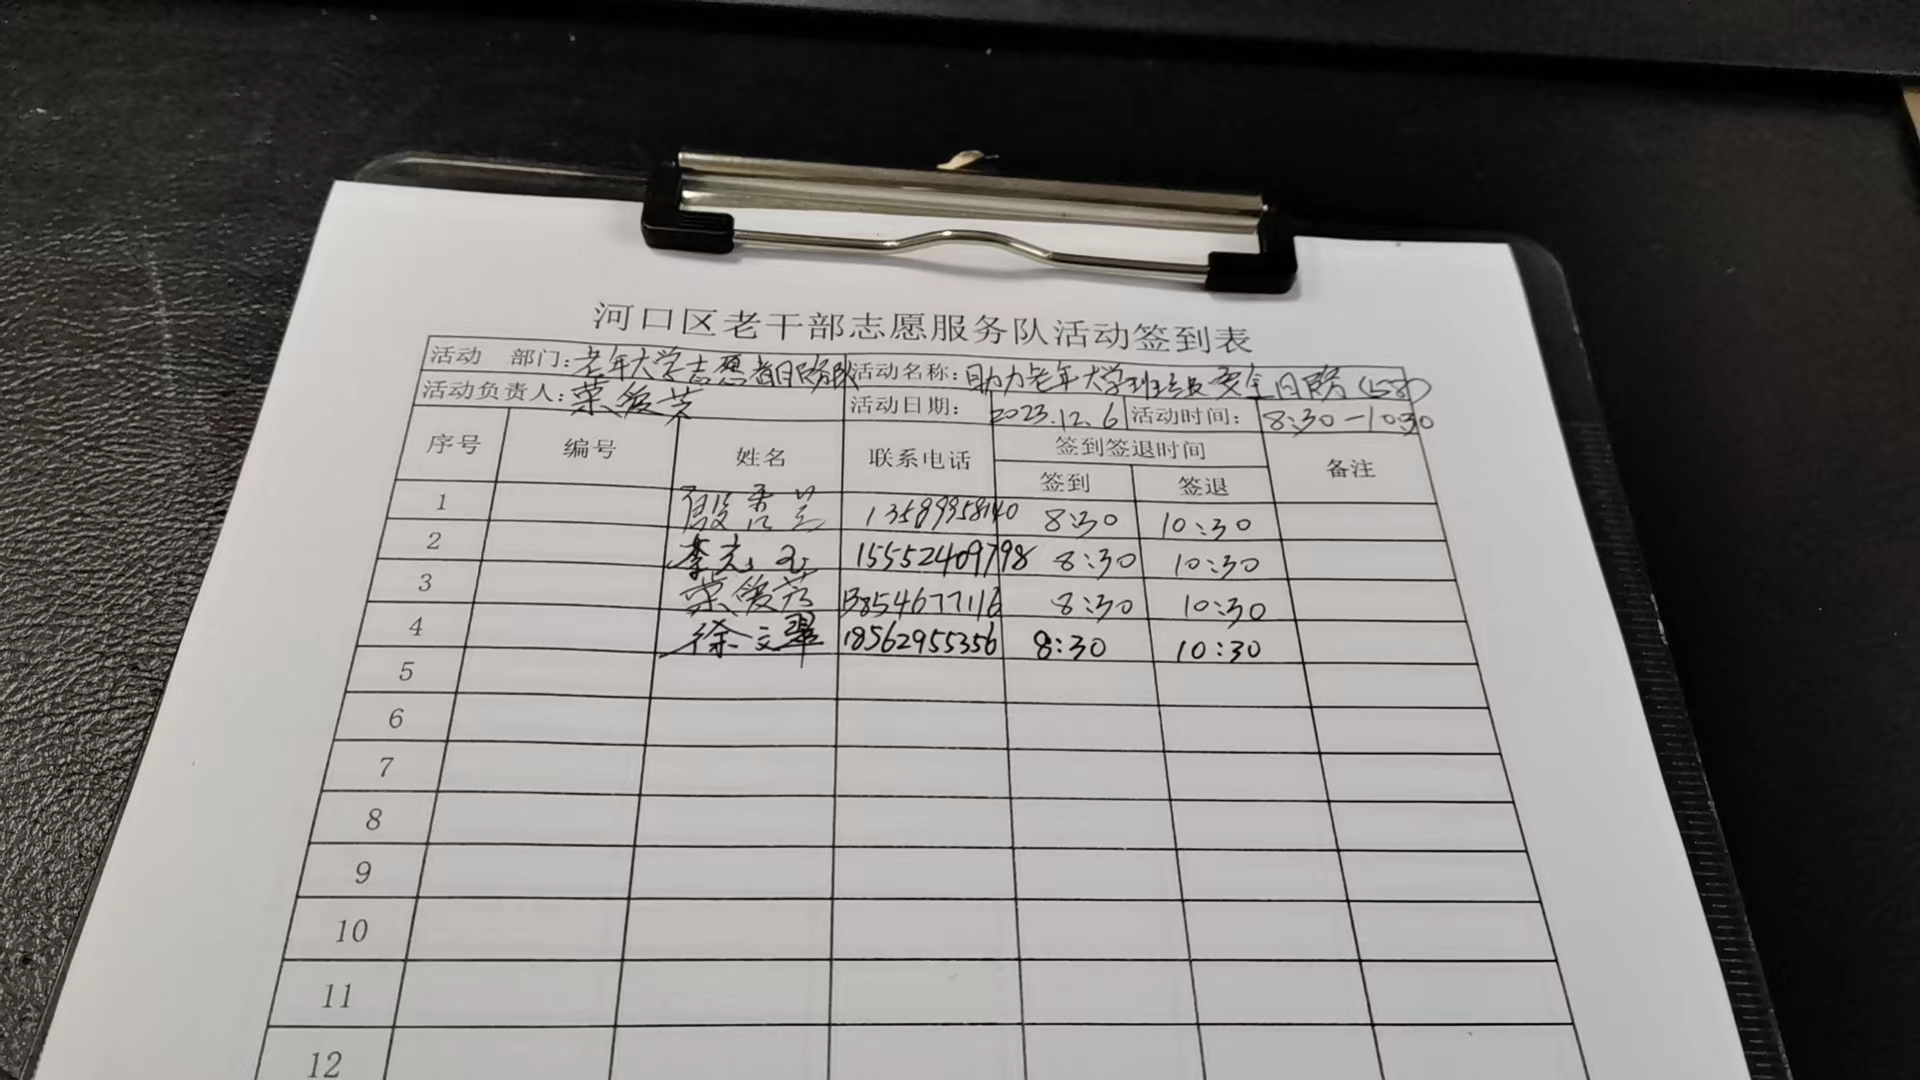 河口区老干部志愿服务队活动签到表
活动 部门：老年大学志愿者服务队 活动名称：助力老年大学班委员安全服务(158)
活动负责人： 活动日期： 2023.12.6 活动时间： 8:30-10:30
序号 编号 姓名 联系电话 签到签退时间 备注
签到 签退
1 13589958140 8:30 10:30
2 李 玉 15552409798 8:30 10:30
3 13854677116 8:30 10:30
4 徐文翠 18562955356 8:30 10:30
5
6
7
8
9
10
11
12